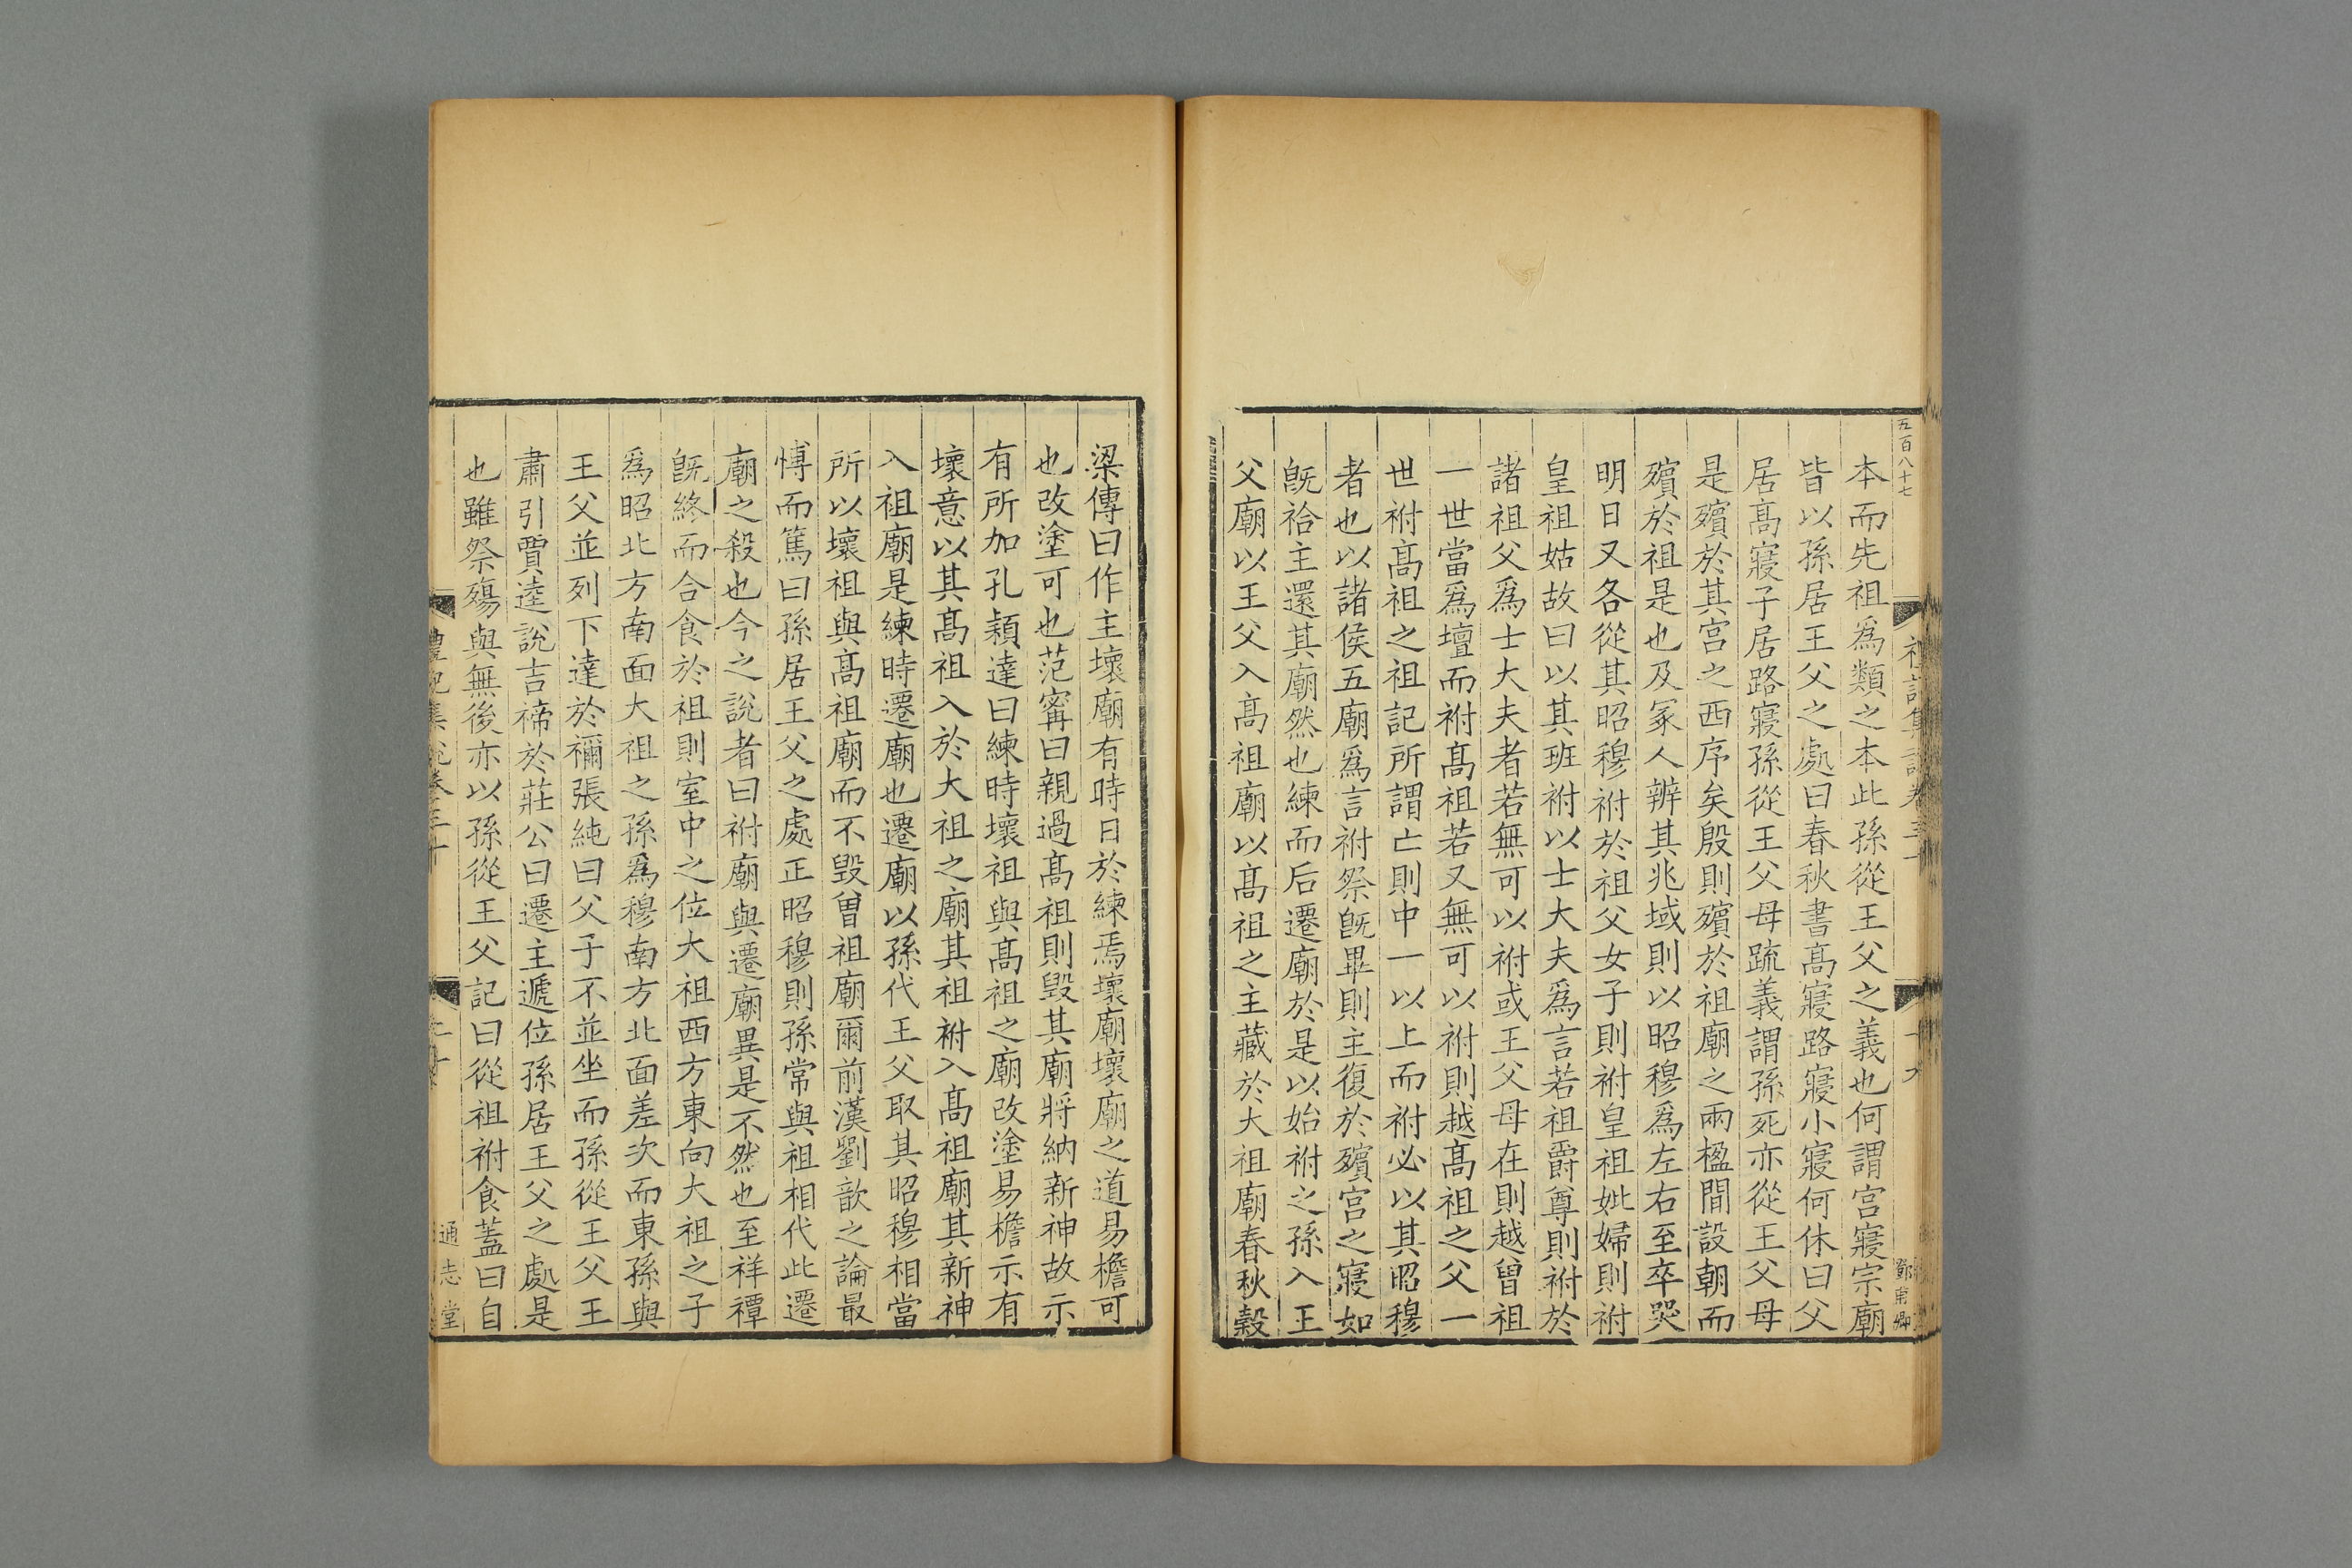 五百八十七
鄧甫卿
本而先祖爲類之本此孫從王父之義也何謂宫寢宗廟
皆以孫居王父之處曰春秋書髙寢路寢小寢何休曰父
居髙寢子居路寢孫從王父母䟽義謂孫死亦從王父母
是殯於其宫之西序矣殷則殯於祖廟之兩楹間設朝而
殯於祖是也及冢人辨其兆域則以昭穆爲左右至卒哭
明日又各從其昭穆祔於祖父女子則祔皇祖妣婦則祔
皇祖姑故曰以其班祔以士大夫爲言若祖爵尊則祔於
諸祖父爲士大夫者若無可以祔或王父母在則越曾祖
一世當爲壇而祔髙祖若又無可以祔則越髙祖之父一
世祔髙祖之祖記所謂亡則中一以上而祔必以其昭穆
者也以諸侯五廟爲言祔祭旣畢則主復於殯宫之寢如
旣祫主還其廟然也練而后遷廟於是以始祔之孫入王
父廟以王父入髙祖廟以髙祖之主藏於大祖廟春秋穀
梁傳曰作主壞廟有時日於練焉壞廟壞廟之道易檐可
也改塗可也范甯曰親過髙祖則毀其廟將納新神故示
有所加孔穎達曰練時壞祖與髙祖之廟改塗易檐示有
壞意以其髙祖入於大祖之廟其祖祔入髙祖廟其新神
入祖廟是練時遷廟也遷廟以孫代王父取其昭穆相當
所以壞祖與髙祖廟而不毀曾祖廟爾前漢劉歆之論最
博而篤曰孫居王父之處正昭穆則孫常與祖相代此遷
廟之殺也今之說者曰祔廟與遷廟異是不然也至祥禫
旣終而合食於祖則室中之位大祖西方東向大祖之子
爲昭北方南面大祖之孫爲穆南方北面差次而東孫與
王父並列下達於禰張純曰父子不並坐而孫從王父王
肅引賈逵說吉禘於莊公曰遷主遞位孫居王父之處是
也雖祭殤與無後亦以孫從王父記曰從祖祔食蓋曰自
禮記集說卷三十
通志堂